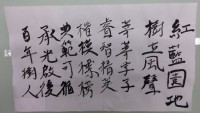 紅藍園地
樹立風聲
莘莘學子
賁智精英
楷模樑榜
典範可推
承先啟後
百年樹人